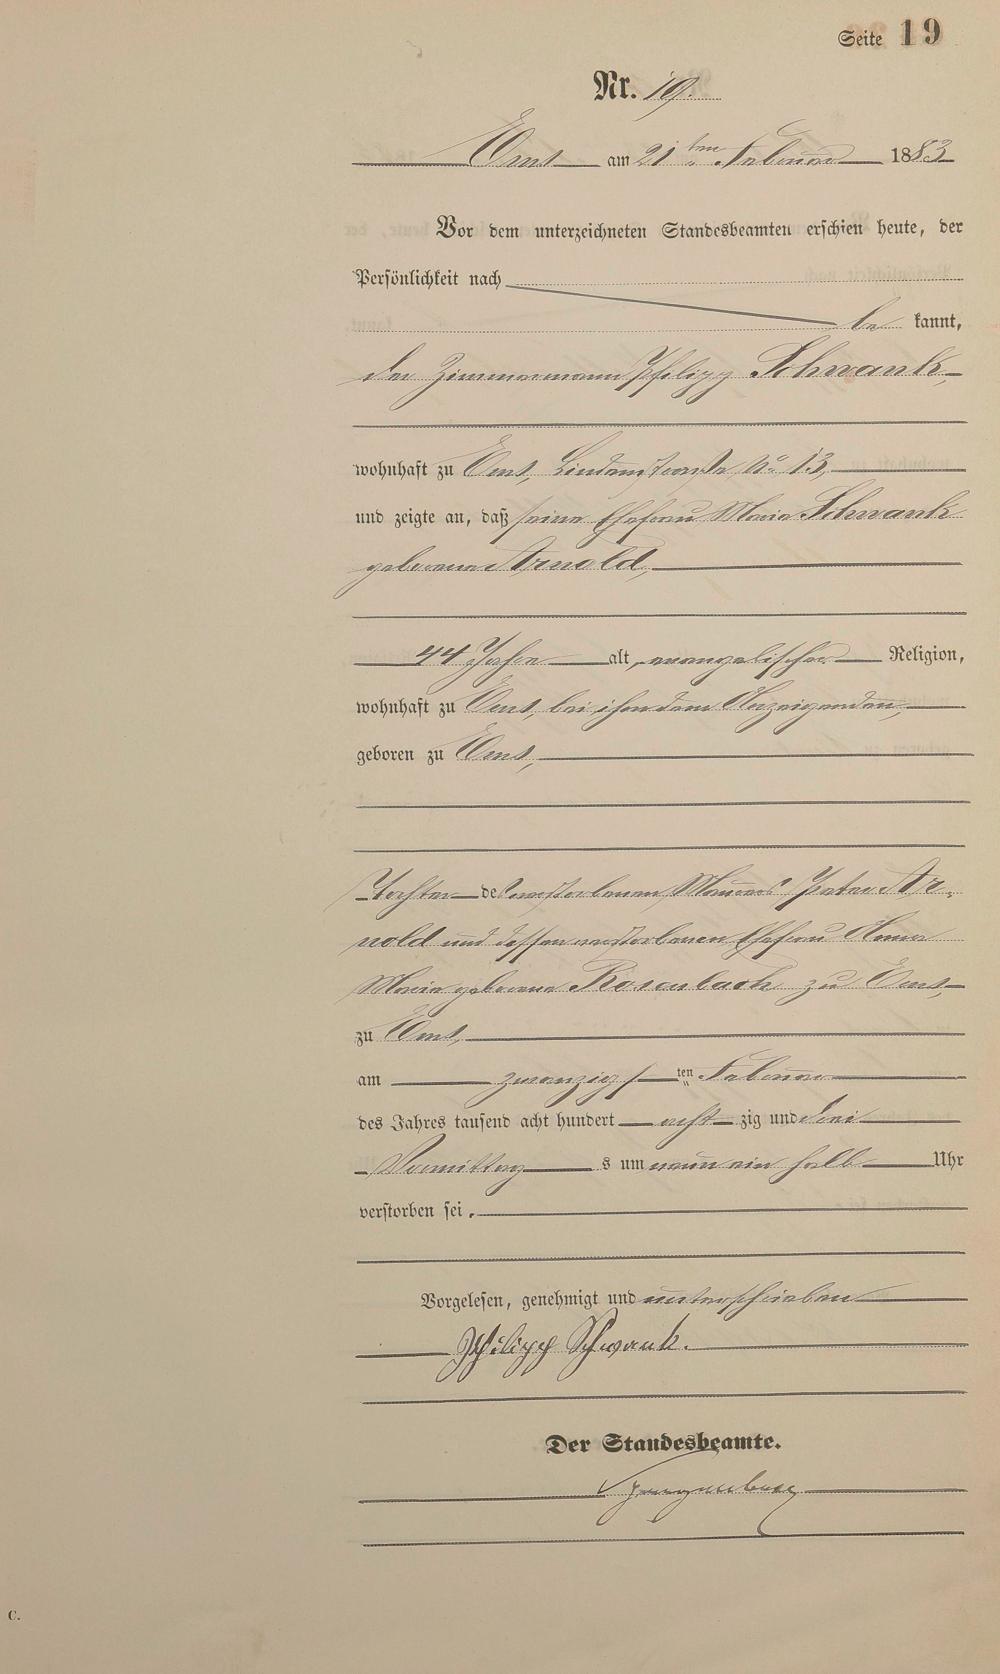 Seite 19
Nr. 19.
Ems am 21ten Februar 1883
Vor dem unterzeichneten Standesbeamten erschien heute, der
Persönlichkeit nach
be kannt,
der Zimmermann Philipp Schwank,
wohnhaft zu Ems, Lindenstraße No 13,
und zeigte an, daß seine Ehefrau Maria Schwank
geborene Arnold,
44 Jahre alt, evangelischer Religion,
wohnhaft zu Ems, bei ihm dem Anzeigenden,
geboren zu Ems,
Tochter des verstorbenen Maurers Peter Ar-
nold und dessen verstorbenen Ehefrau Anna
Maria geborene Rosenbach zu Ems,
zu Ems,
am zwanzigsten Februar
des Jahres tausend acht hundert acht zig und drei
Vormittag s um neun ein halb Uhr
verstorben sei.
Vorgelesen, genehmigt und unterschrieben
Philipp Schwank.
Der Standesbeamte.
Spangenberg
C.